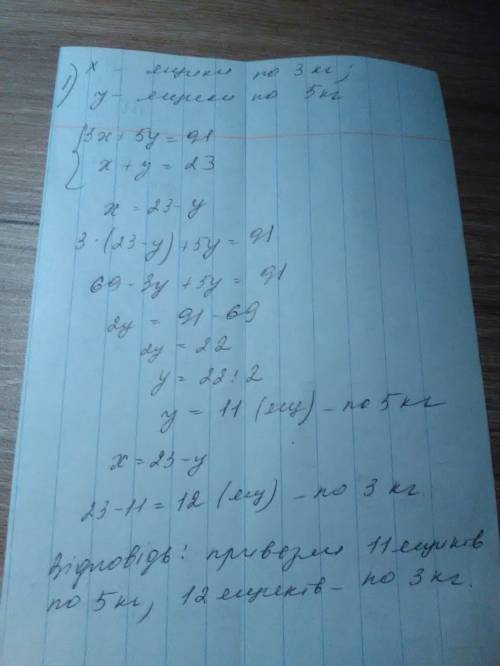 1) x - ящики по 3 кг;
y - ящики по 5кг
{3x + 5y = 91
x + y = 23
x = 23 - y
3·(23-y) + 5y = 91
69 - 3y + 5y = 91
2y = 91 - 69
2y = 22
y = 22 : 2
y = 11 (ящ) - по 5 кг
x = 23 - y
23 - 11 = 12 (ящ) - по 3 кг.
Відповідь: привезли 11 ящиків
по 5 кг, 12 ящиків - по 3 кг.